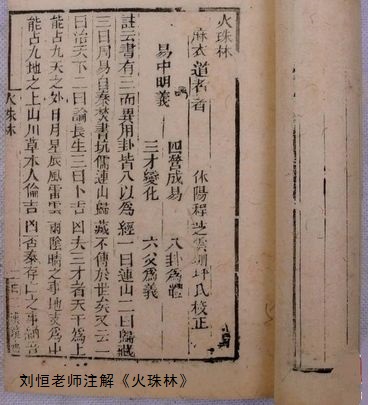 火珠林
麻衣道者著 休陽程芝雲潤坪氏校正
易中明義
四營成易 八卦為體
三才變化 六爻為義
註云書有三而異用卦皆八以為經一曰連山二曰歸藏
三曰周易自秦焚書坑儒連山歸藏不傳於世矣又云一
曰治天下二曰論長生三曰卜吉凶夫三才者天為上
能占九天之外日月星辰風雷雲雨陰晴之事地支為中
能占九地之上山川草木人倫吉凶否泰存亡之事納音
火珠林
刘恒老师注解《火珠林》